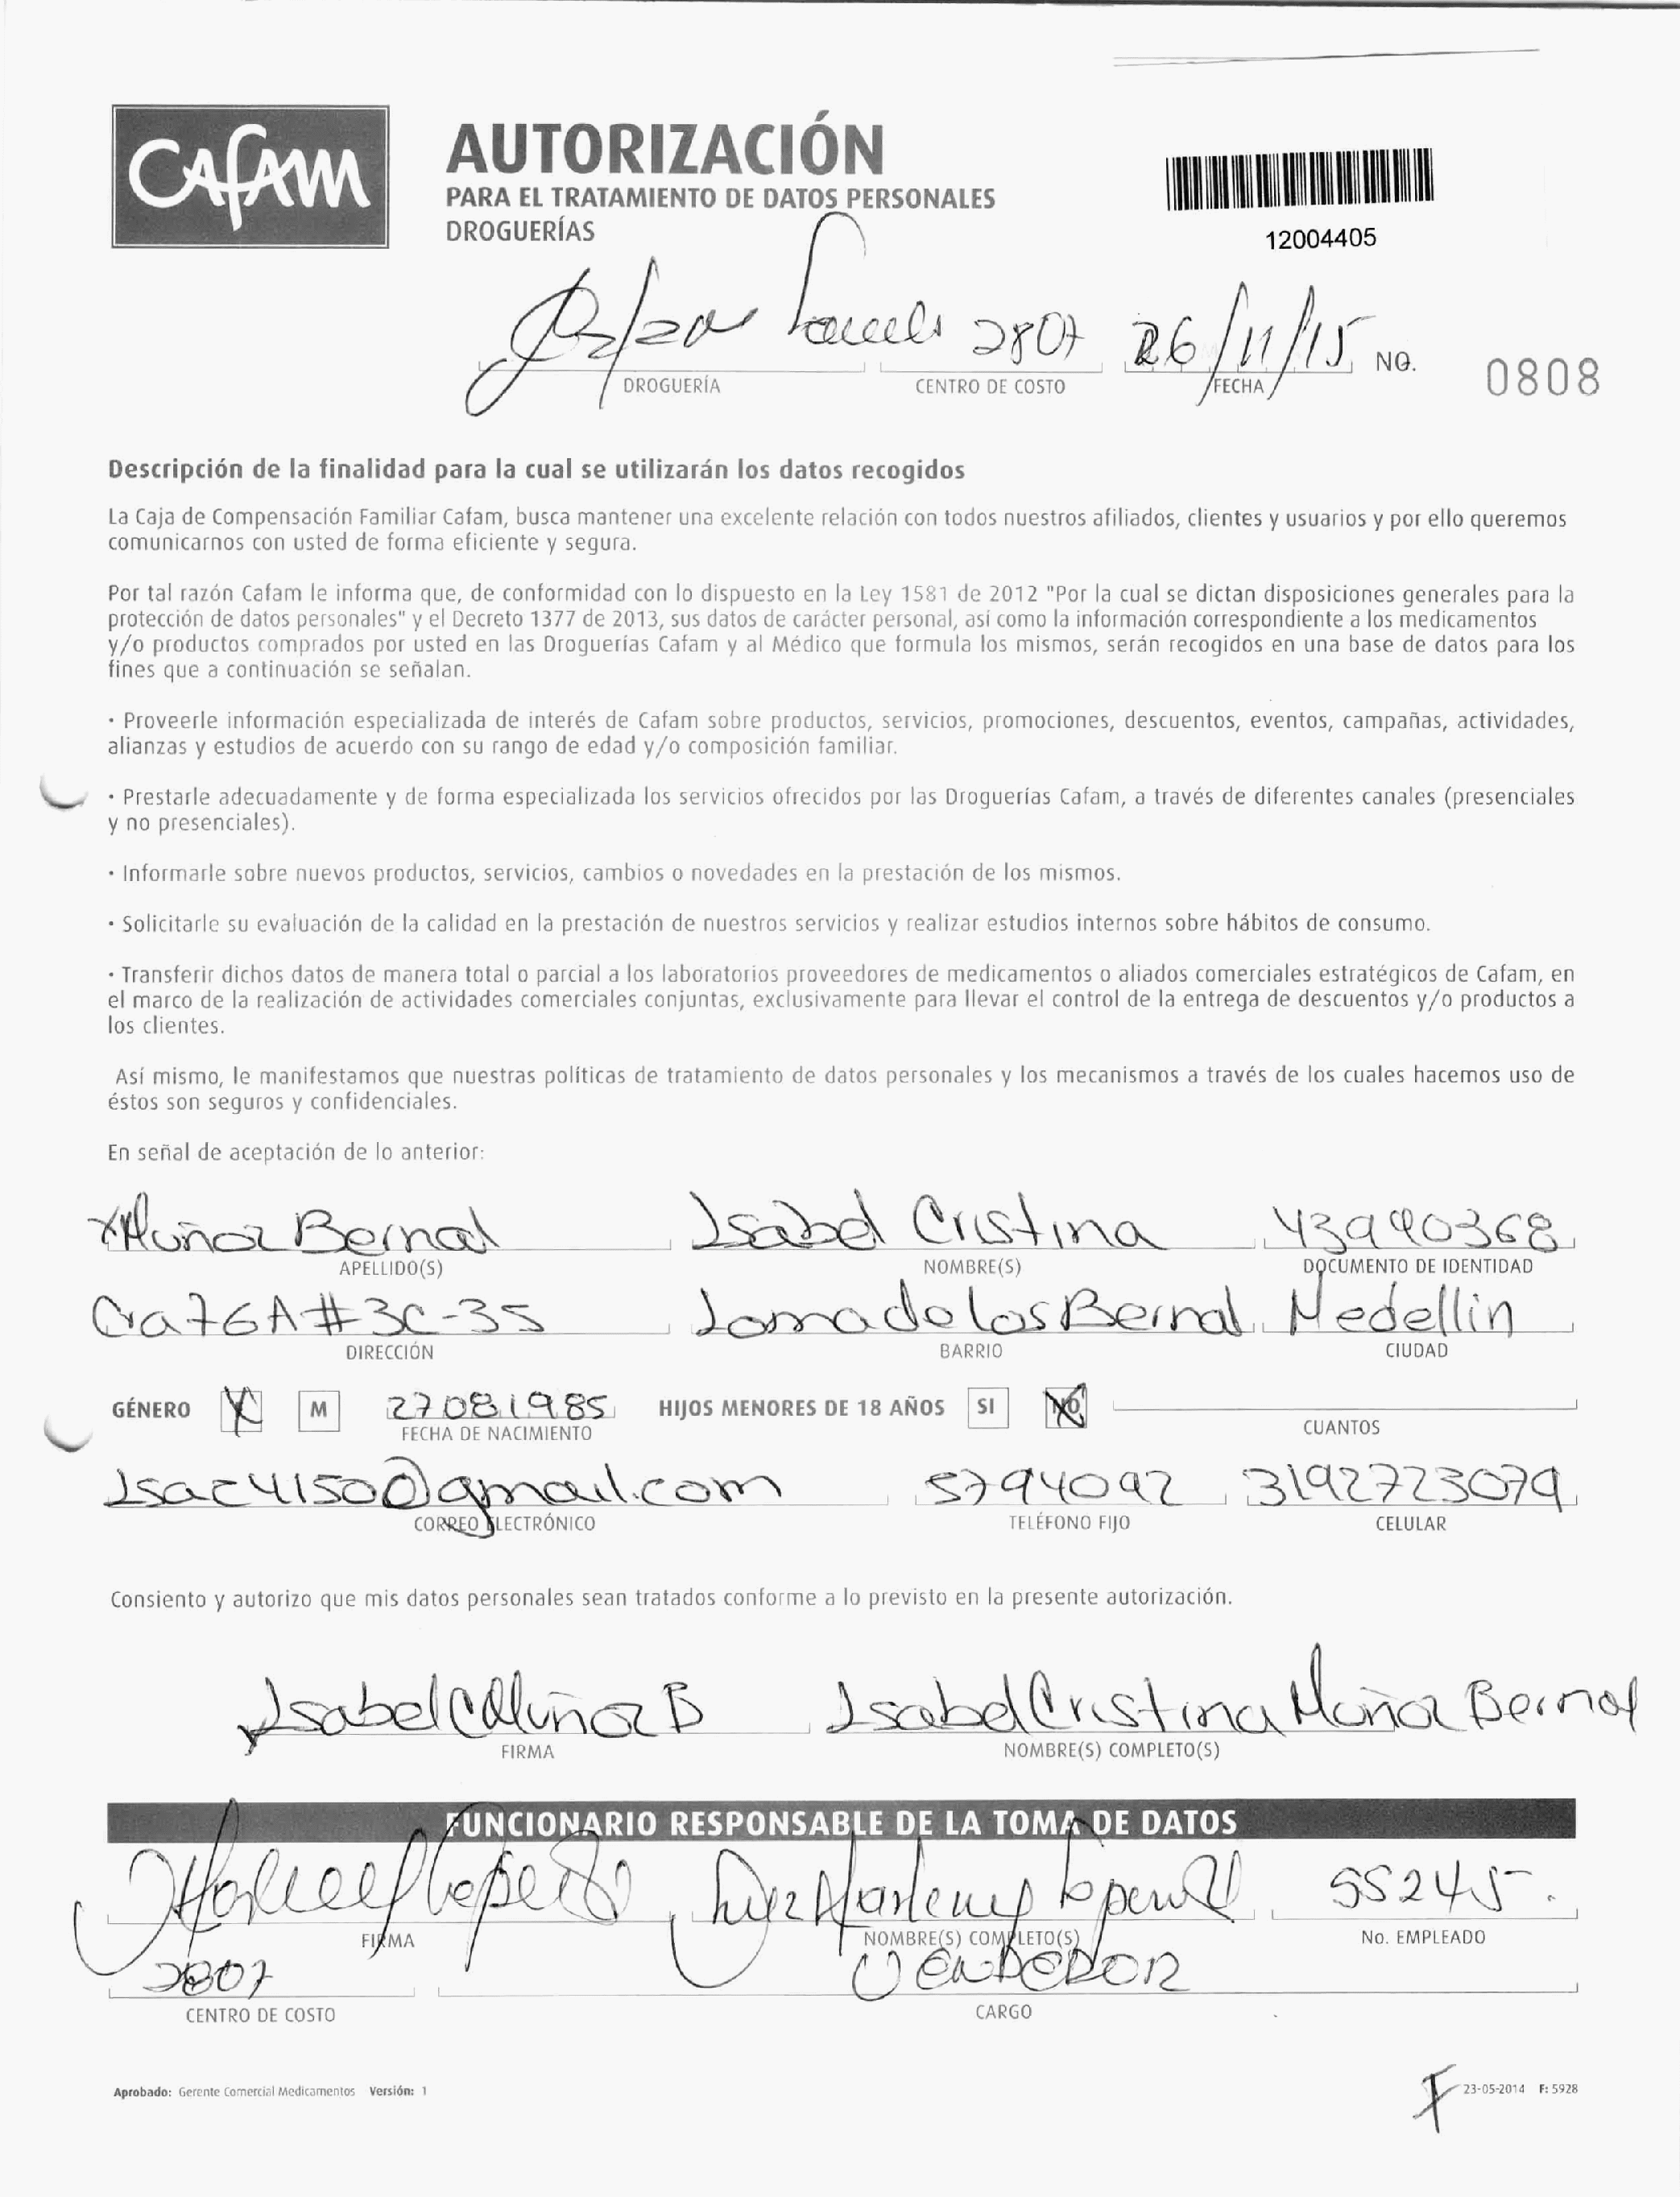 CAFAM
AUTORIZACIÓN
PARA EL TRATAMIENTO DE DATOS PERSONALES
DROGUERÍAS
12004405
2807 26/11/15 NO. 0808
DROGUERÍA CENTRO DE COSTO FECHA
Descripción de la finalidad para la cual se utilizarán los datos recogidos
La Caja de Compensación Familiar Cafam, busca mantener una excelente relación con todos nuestros afiliados, clientes y usuarios y por ello queremos
comunicarnos con usted de forma eficiente y segura.
Por tal razón Cafam le informa que, de conformidad con lo dispuesto en la Ley 1581 de 2012 "Por la cual se dictan disposiciones generales para la
protección de datos personales" y el Decreto 1377 de 2013, sus datos de carácter personal, así como la información correspondiente a los medicamentos
y/o productos comprados por usted en las Droguerías Cafam y al Médico que formula los mismos, serán recogidos en una base de datos para los
fines que a continuación se señalan.
· Proveerle información especializada de interés de Cafam sobre productos, servicios, promociones, descuentos, eventos, campañas, actividades,
alianzas y estudios de acuerdo con su rango de edad y/o composición familiar.
· Prestarle adecuadamente y de forma especializada los servicios ofrecidos por las Droguerías Cafam, a través de diferentes canales (presenciales
y no presenciales).
· Informarle sobre nuevos productos, servicios, cambios o novedades en la prestación de los mismos.
· Solicitarle su evaluación de la calidad en la prestación de nuestros servicios y realizar estudios internos sobre hábitos de consumo.
· Transferir dichos datos de manera total o parcial a los laboratorios proveedores de medicamentos o aliados comerciales estratégicos de Cafam, en
el marco de la realización de actividades comerciales conjuntas, exclusivamente para llevar el control de la entrega de descuentos y/o productos a
los clientes.
Así mismo, le manifestamos que nuestras políticas de tratamiento de datos personales y los mecanismos a través de los cuales hacemos uso de
éstos son seguros y confidenciales.
En señal de aceptación de lo anterior:
x Muñoz Bernal Isabel Cristina 43990368
APELLIDO(S) NOMBRE(S) DOCUMENTO DE IDENTIDAD
Cra76A#3C-35 Loma de los Bernal Medellin
DIRECCIÓN BARRIO CIUDAD
GÉNERO X M 27081985 HIJOS MENORES DE 18 AÑOS SI NO
FECHA DE NACIMIENTO CUANTOS
Isac4150@gmail.com 5794092 3192723079
CORREO ELECTRÓNICO TELÉFONO FIJO CELULAR
Consiento y autorizo que mis datos personales sean tratados conforme a lo previsto en la presente autorización.
x Isabel C Muñoz B Isabel Cristina Muñoz Bernal
FIRMA NOMBRE(S) COMPLETO(S)
FUNCIONARIO RESPONSABLE DE LA TOMA DE DATOS
Luz Marleny 55245
FIRMA NOMBRE(S) COMPLETO(S) No. EMPLEADO
2807 VENDEDOR
CENTRO DE COSTO CARGO
Aprobado: Gerente Comercial Medicamentos Versión: 1 F 23-05-2014 F: 5928